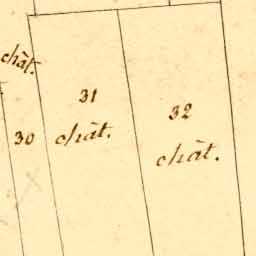 chât.
31
32
30
chât.
chât.